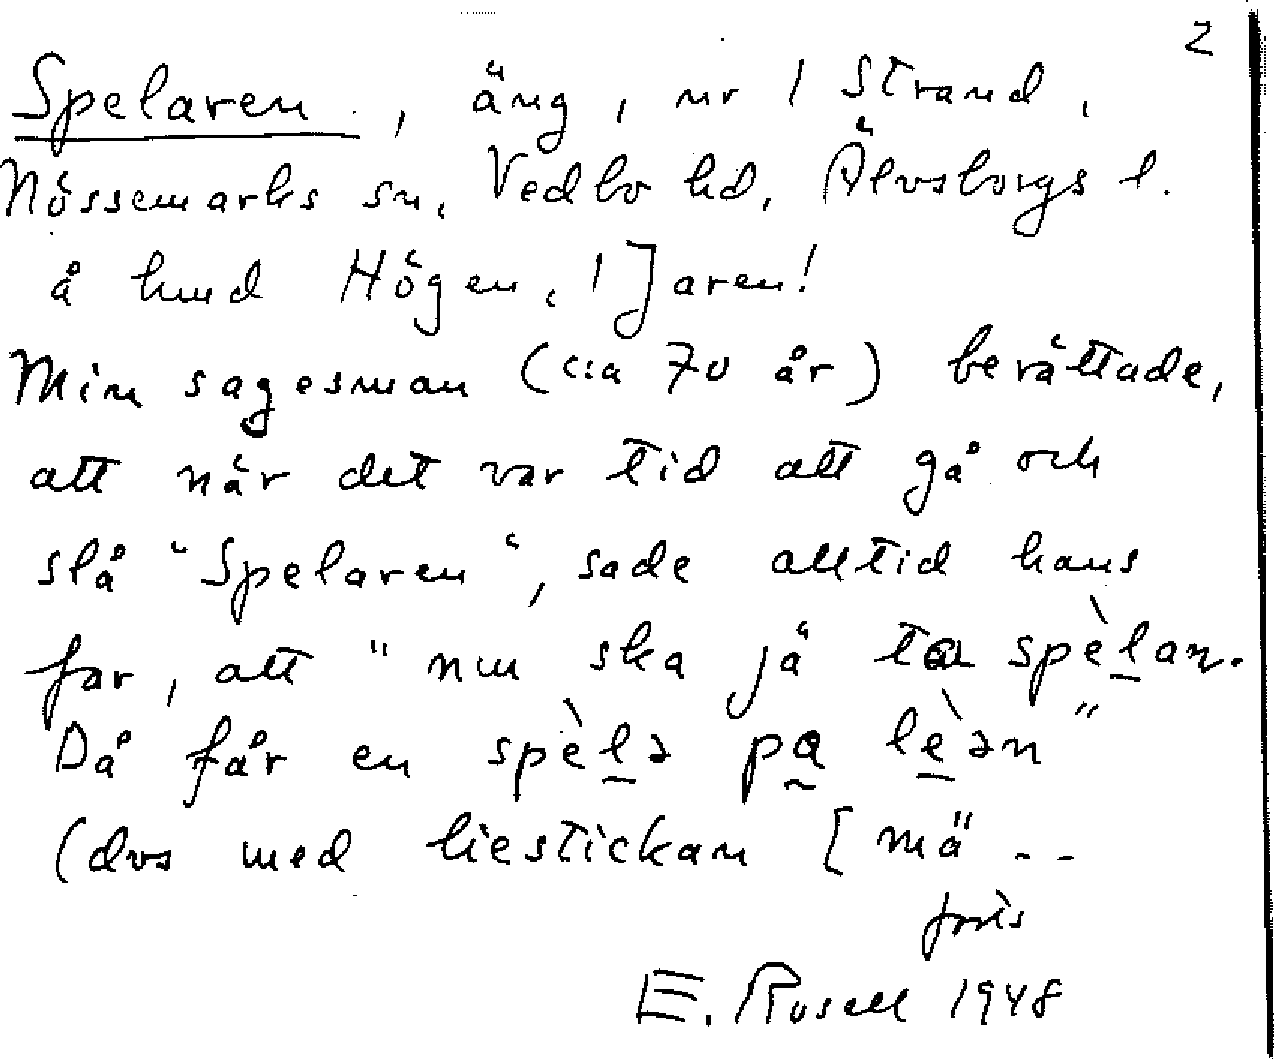 2
Spelaren, äng, nr 1 Strand,
Nössemarks sn, Vedbo hd, Älvsborgs l.
å hmd Högen, 1 Jaren!
Min sagesman (c:a 70 år) berättade,
att när det var tid att gå och
slå "Spelaren", sade alltid hans
far, att "nu ska jä ta spèlan.
Då får en spèlə pa lèən"
(dvs med liestickan [mä --
forts
E. Rosell 1948